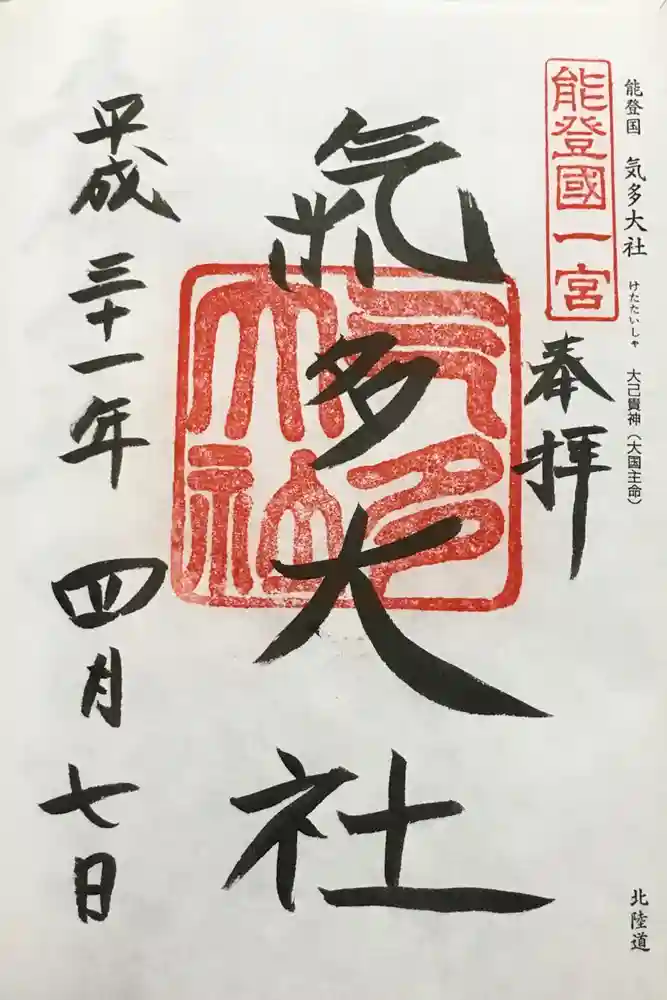 能登国 気多大社 けたたいしゃ 大己貴神（大国主命）
北陸道
能登國一宮
奉拝
氣多大社
氣多大社
平成三十一年 四月七日